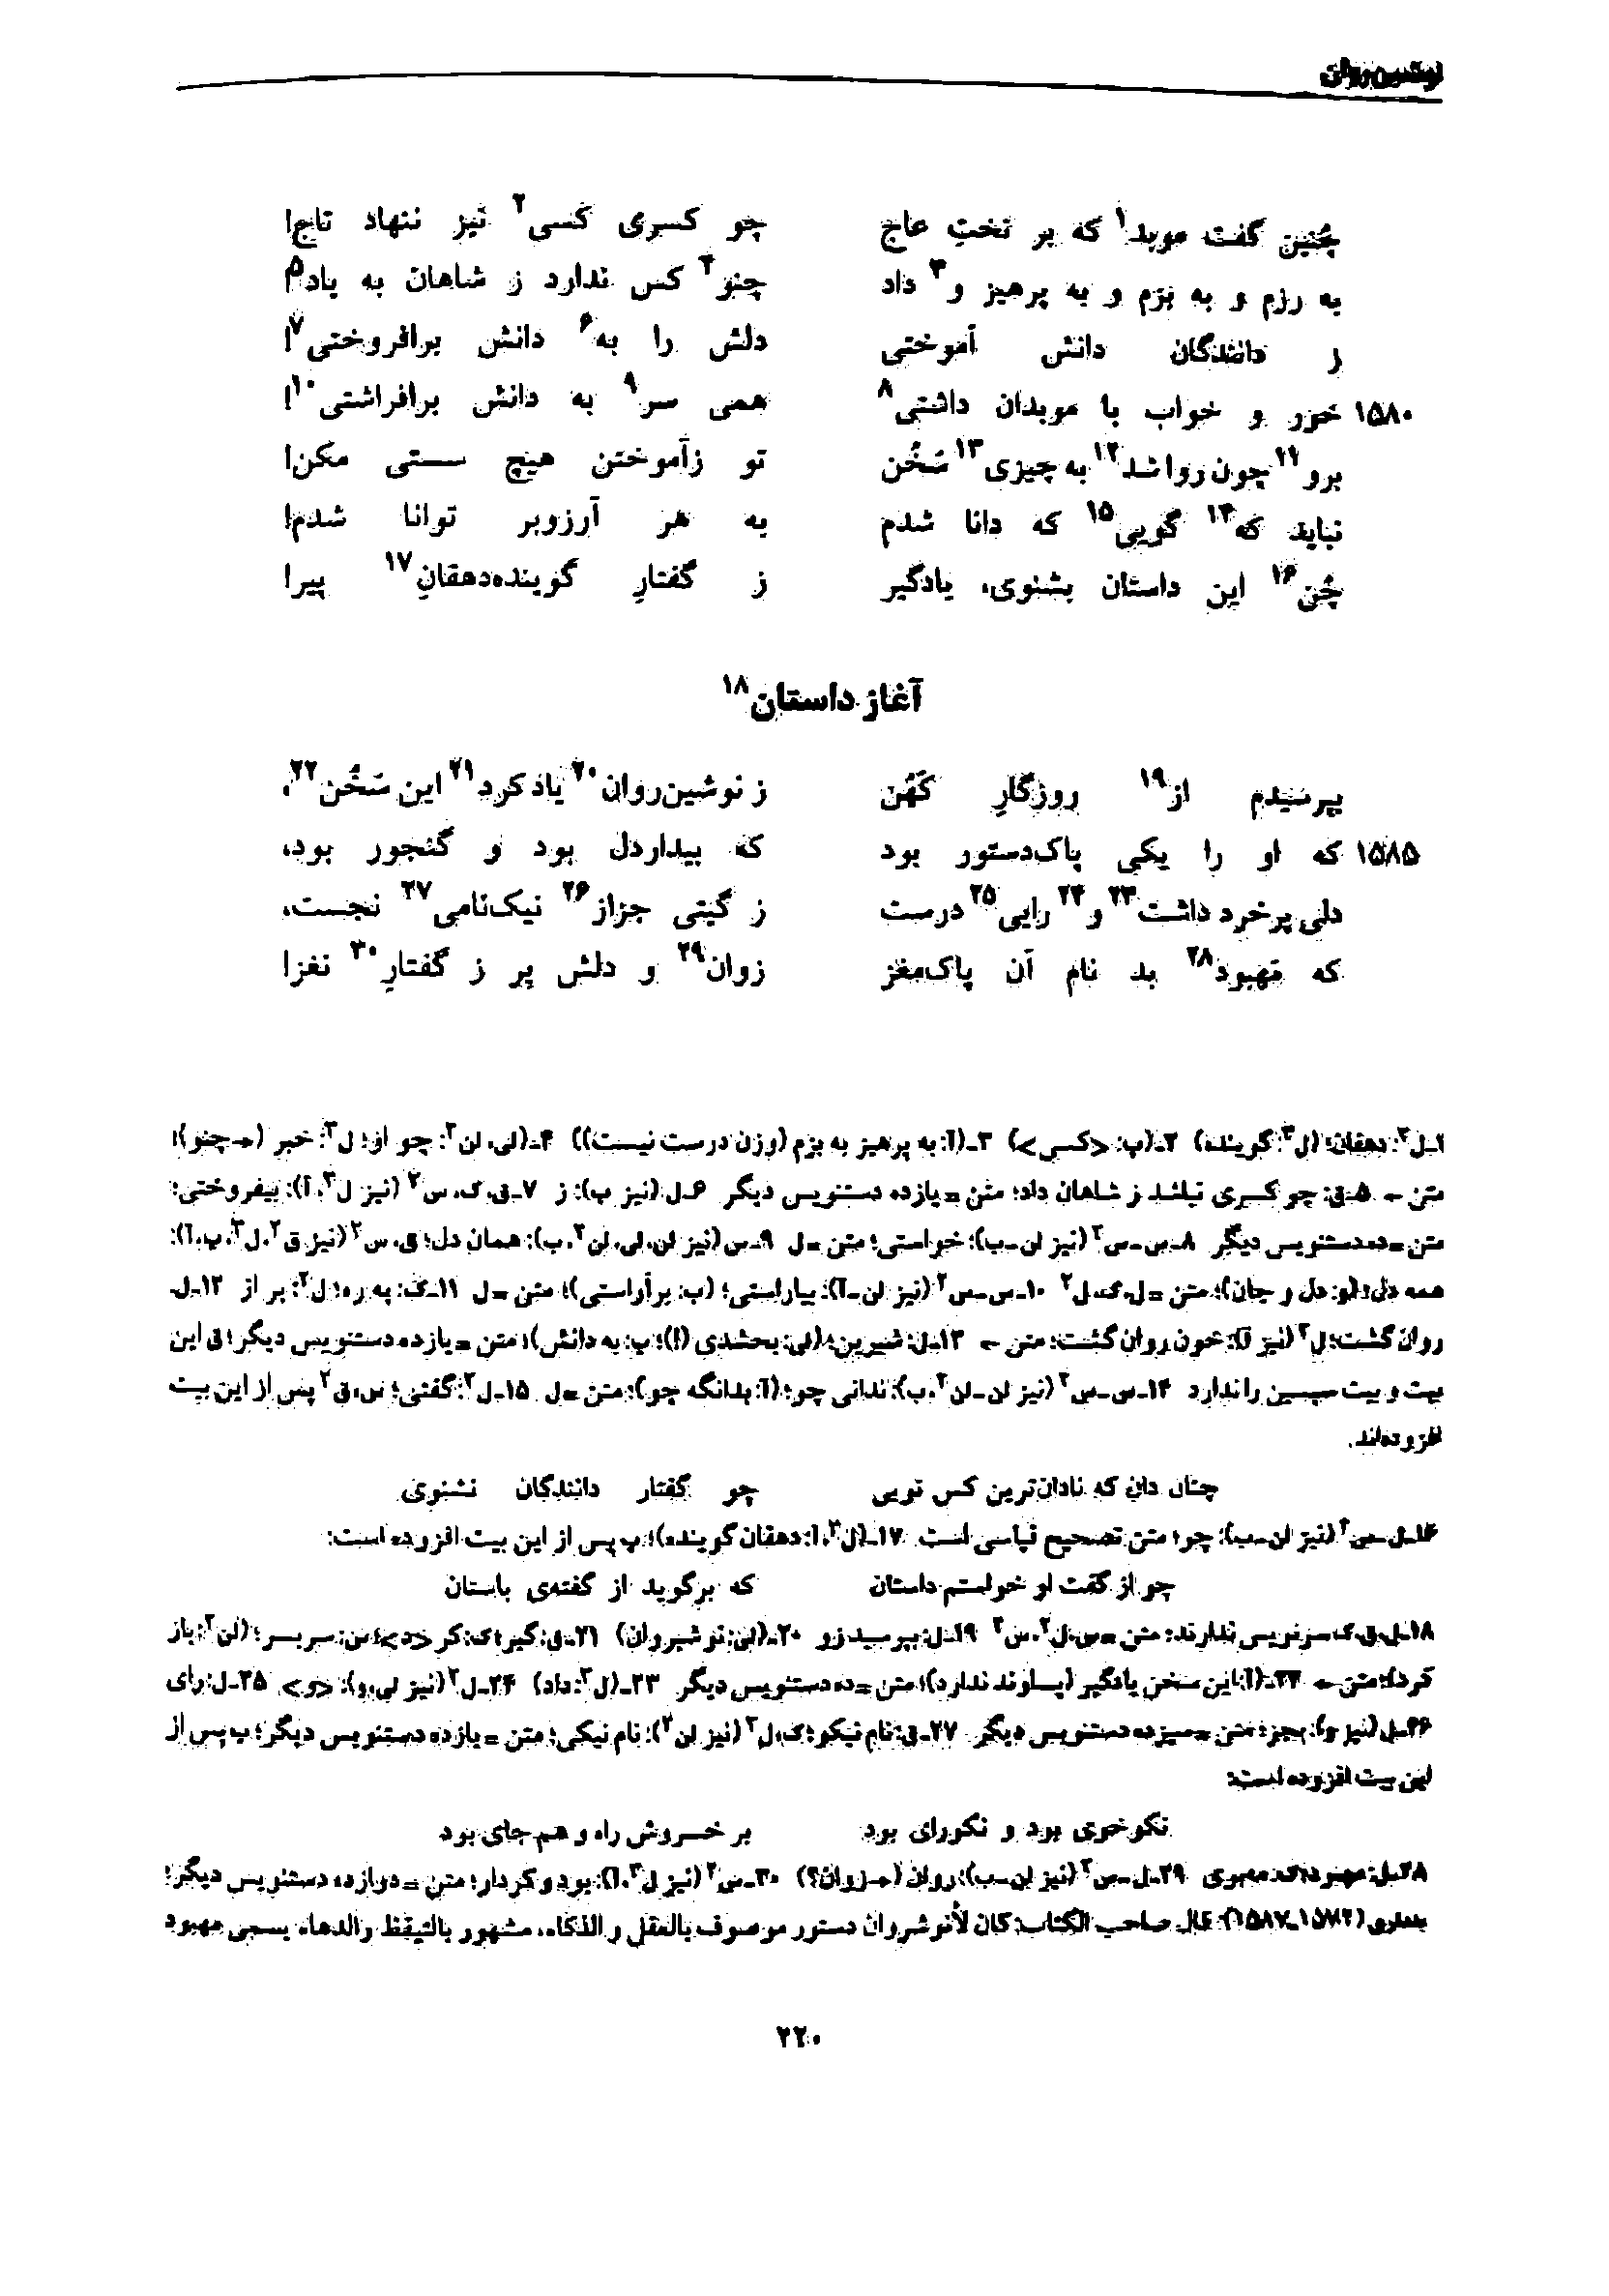 نوشین‌روان
چُنین گفت موبد۱ که بر تختِ عاج چو کسری کسی۲ نیز ننهاد تاج!
به رزم و به بزم و به پرهیز و۳ داد چنو۴ کس ندارد ز شاهان به یاد۵!
ز دانندگان دانش آموختی دلش را به۶ دانش برافروختی۷!
۱۵۸۰ خور و خواب با موبدان داشتی۸ همی سر۹ به دانش برافراشتی۱۰!
برو۱۱ چون روا شد۱۲ به چیزی۱۳ سَخُن تو زآموختن هیچ سستی مکن!
نباید که۱۴ گویی۱۵ که دانا شدم به هر آرزوبر توانا شدم!
چُن۱۶ این داستان بشنوی، یادگیر ز گفتارِ گوینده‌دهقانِ۱۷ پیر!
آغاز داستان۱۸
بپرسیدم از۱۹ روزگارِ کَهُن ز نوشین‌روان۲۰ یاد کرد۲۱ این سَخُن۲۲،
۱۵۸۵ که او را یکی پاک‌دستور بود که بیداردل بود و گنجور بود،
دلی پرخرد داشت۲۳ و۲۴ رایی۲۵ درست ز گیتی جزاز۲۶ نیک‌نامی۲۷ نجست،
که مَهبود۲۸ بد نام آن پاک‌مغز زوان۲۹ و دلش پر ز گفتارِ۳۰ نغز!
۱ـ ل۲: دهقان؛ (ل۳: گوینده) ۲ـ (پ: <کسی>) ۳ـ (آ: به پرهیز به بزم (وزن درست نیست)) ۴ـ (لی، لن۲: چو او؛ ل۳: خبر (← چنو)؛
متن ← ۵ـ ق: چو کسری نباشد ز شاهان داد؛ متن = یازده دستنویس دیگر ۶ـ ل (نیز پ): ز ۷ـ ق، ک، س۲ (نیز ل۳، آ): بیفروختی؛
متن = ده دستنویس دیگر ۸ـ س ـ س۲ (نیز لن ـ ب): خواستی؛ متن = ل ۹ـ س (نیز لن، لی، لن۲، ب): همان دل؛ ق، س۲ (نیز ق۲، ل۳، پ، آ):
همه دل؛ (و: دل و جان)؛ متن = ل، ک، ل۲ ۱۰ـ س ـ س۲ (نیز لن ـ آ): بیاراستی؛ (ب: برآراستی)؛ متن = ل ۱۱ـ ک: به ره؛ ل۲: بر از ۱۲ـ ل،
روان گشت؛ ل۲ (نیز آ): خون روان گشت؛ متن ← ۱۳ـ ل: شیرین؛ (لی: بخشدی (!)؛ پ: به دانش)؛ متن = یازده دستنویس دیگر؛ ق این
بیت و بیت سپسین را ندارد ۱۴ـ س ـ س۲ (نیز لن ـ لن۲، ب): ندانی چو؛ (آ: بدانگه چو)؛ متن = ل ۱۵ـ ل۲: گفتی؛ س، ق۲ پس از این بیت
افزوده‌اند:
چنان دان که نادان‌ترین کس تویی چو گفتار دانندگان نشنوی
۱۶ـ ل ـ س۲ (نیز لن ـ ب): چو؛ متن تصحیح قیاسی است ۱۷ـ (ل۳، آ: دهقان گوینده)؛ پ پس از این بیت افزوده است:
چو از گفت او خواستم داستان که برگوید از گفته‌ی باستان
۱۸ـ ل، ق، ک سرنویس ندارند؛ متن = س، ل۲، س۲ ۱۹ـ ل: بپرسید زو ۲۰ـ (لی: نوشیروان) ۲۱ـ ق: گیر؛ ک: کر<د>؛ س: سربسر؛ (لن۲: باز
کرد)؛ متن ← ۲۲ـ (آ: این سخن یادگیر (پساوند ندارد)؛ متن = ده دستنویس دیگر ۲۳ـ (ل۳: داد) ۲۴ـ ل۲ (نیز لی، و): <و> ۲۵ـ ل: رای
۲۶ـ ل (نیز و): بجز؛ متن = سیزده دستنویس دیگر ۲۷ـ ق: نام نیکو؛ ک، ل۲ (نیز لن۲): نام نیکی؛ متن = یازده دستنویس دیگر؛ ب پس از
این بیت افزوده است:
نکوخوی بود و نکورای بود بر خسروش راه و هم جای بود
۲۸ـ ل: مهبرد؛ ک: مهبوی ۲۹ـ ل ـ س۲ (نیز لن ـ ب): روان (← زوان؟) ۳۰ـ س۲ (نیز ل۳، آ): بود و کردار؛ متن = دوازده دستنویس دیگر؛
بنداری (۱۵۷۲ـ۱۵۸۷): قال صاحب الکتاب: کان لأنوشروان دستور موصوف بالعقل و الذکاء، مشهور بالتیقظ و الدهاء، یسمی مهبود
۲۲۰